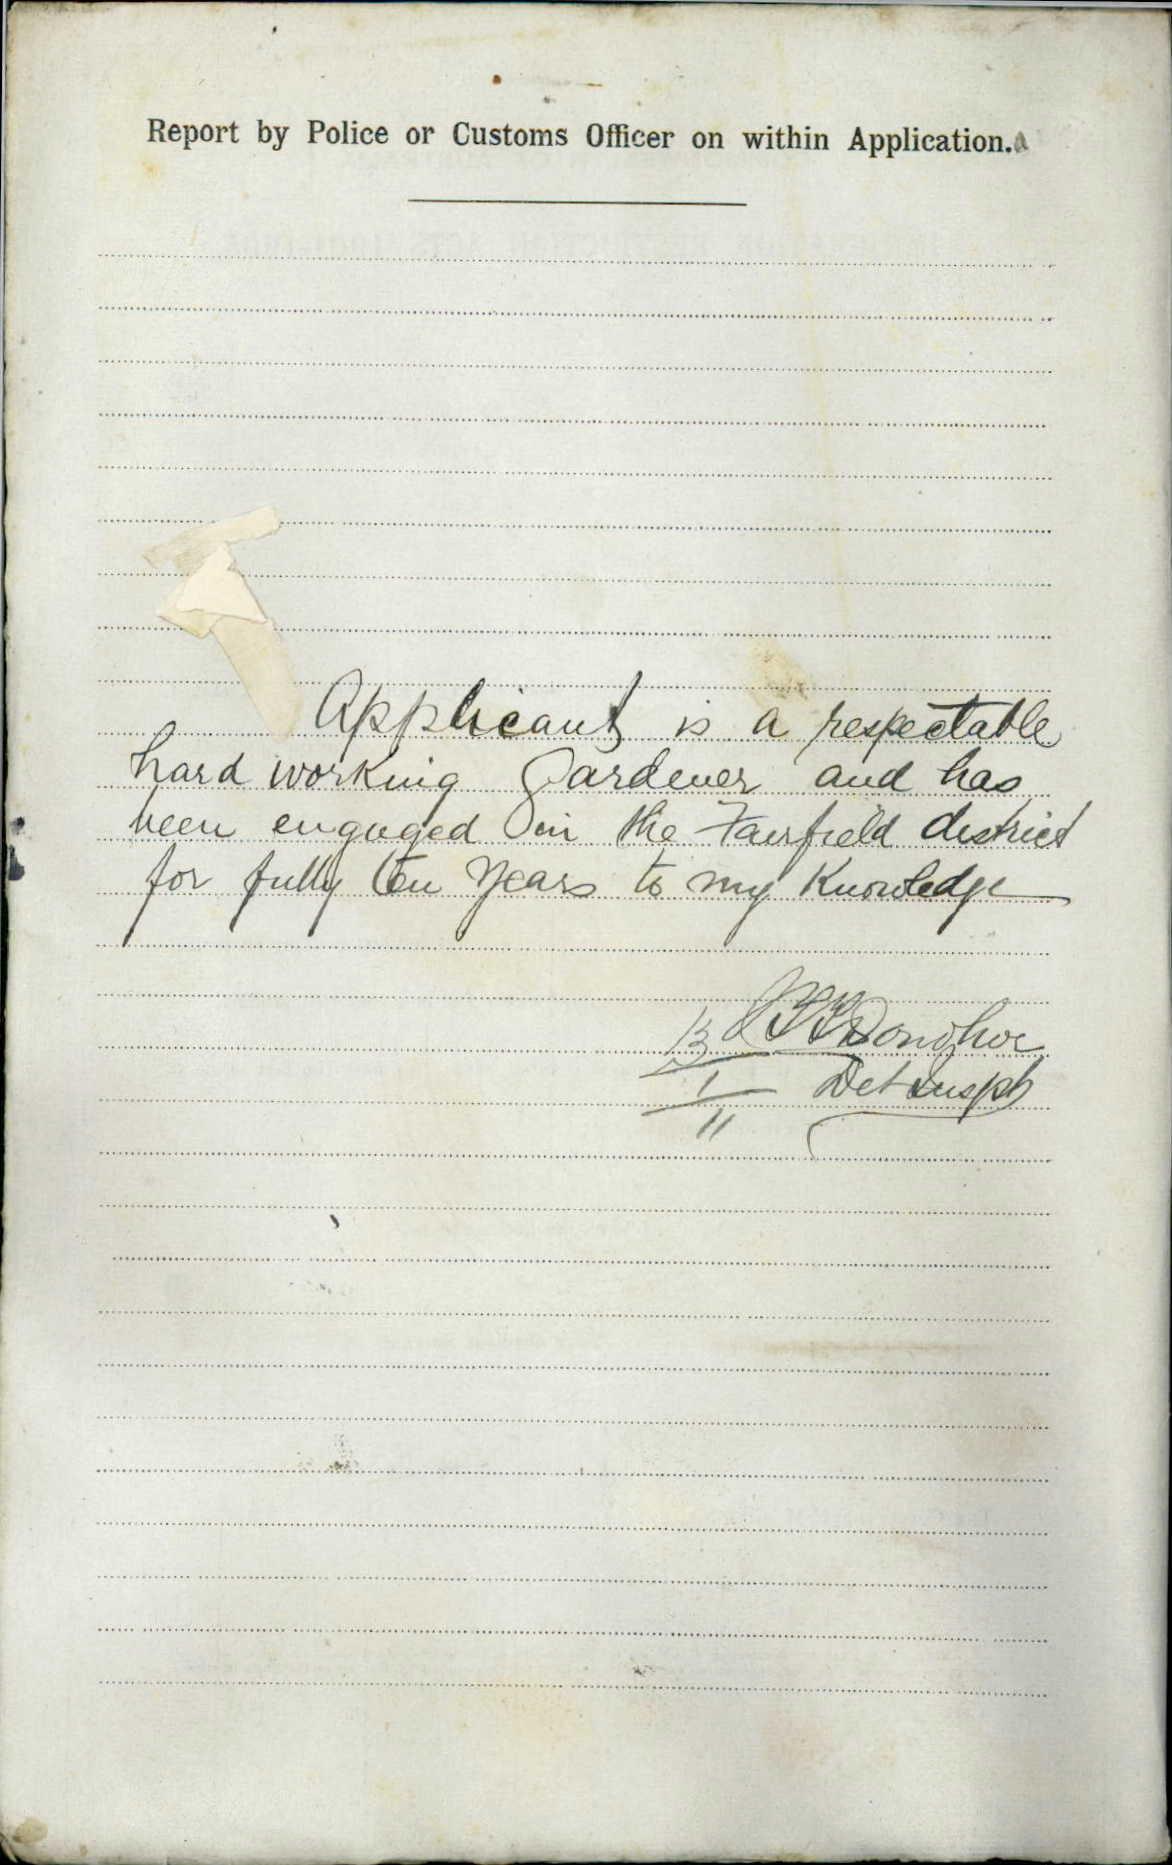 Report by Police or Customs Officer on within Application.
Applicant is a respectable
hard working Gardener and has
been engaged in the Fairfield district
for fully ten years to my Knowledge
Donohoe
13
1
11
Det Insptr